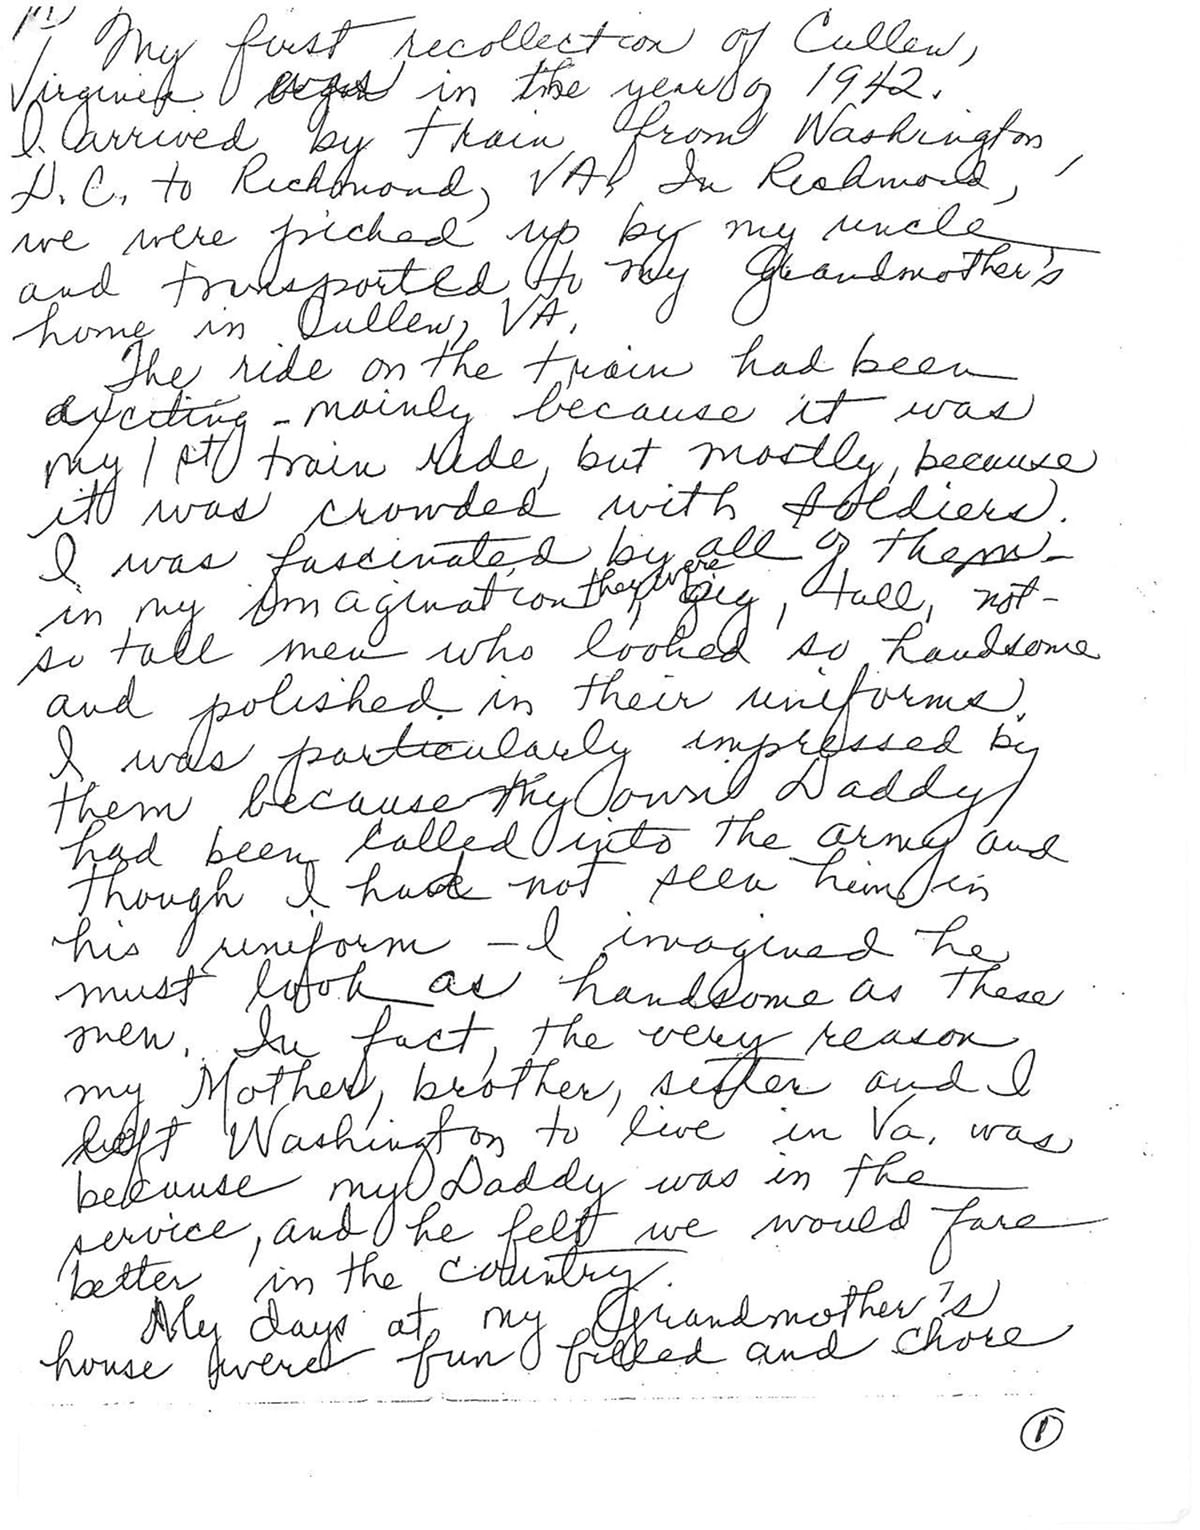 (1)
My first recollection of Cullen,
Virginia was in the year of 1942.
I arrived by train from Washington,
D.C. to Richmond, VA. In Richmond,
we were picked up by my uncle
and transported to my Grandmother's
home in Cullen, VA.
The ride on the train had been
exciting - mainly because it was
my 1st train ride, but mostly, because
it was crowded with soldiers.
I was fascinated by all of them -
in my imagination they were big, tall, not-
so tall men who looked so handsome
and polished in their uniforms.
I was particularly impressed by
them because my own Daddy
had been called into the army and
though I had not seen him in
his uniform - I imagined he
must look as handsome as these
men. In fact, the very reason
my Mother, brother, sister and I
left Washington to live in Va. was
because my Daddy was in the
service, and he felt we would fare
better in the country.
My days at my Grandmother's
house were fun filled and chore
1